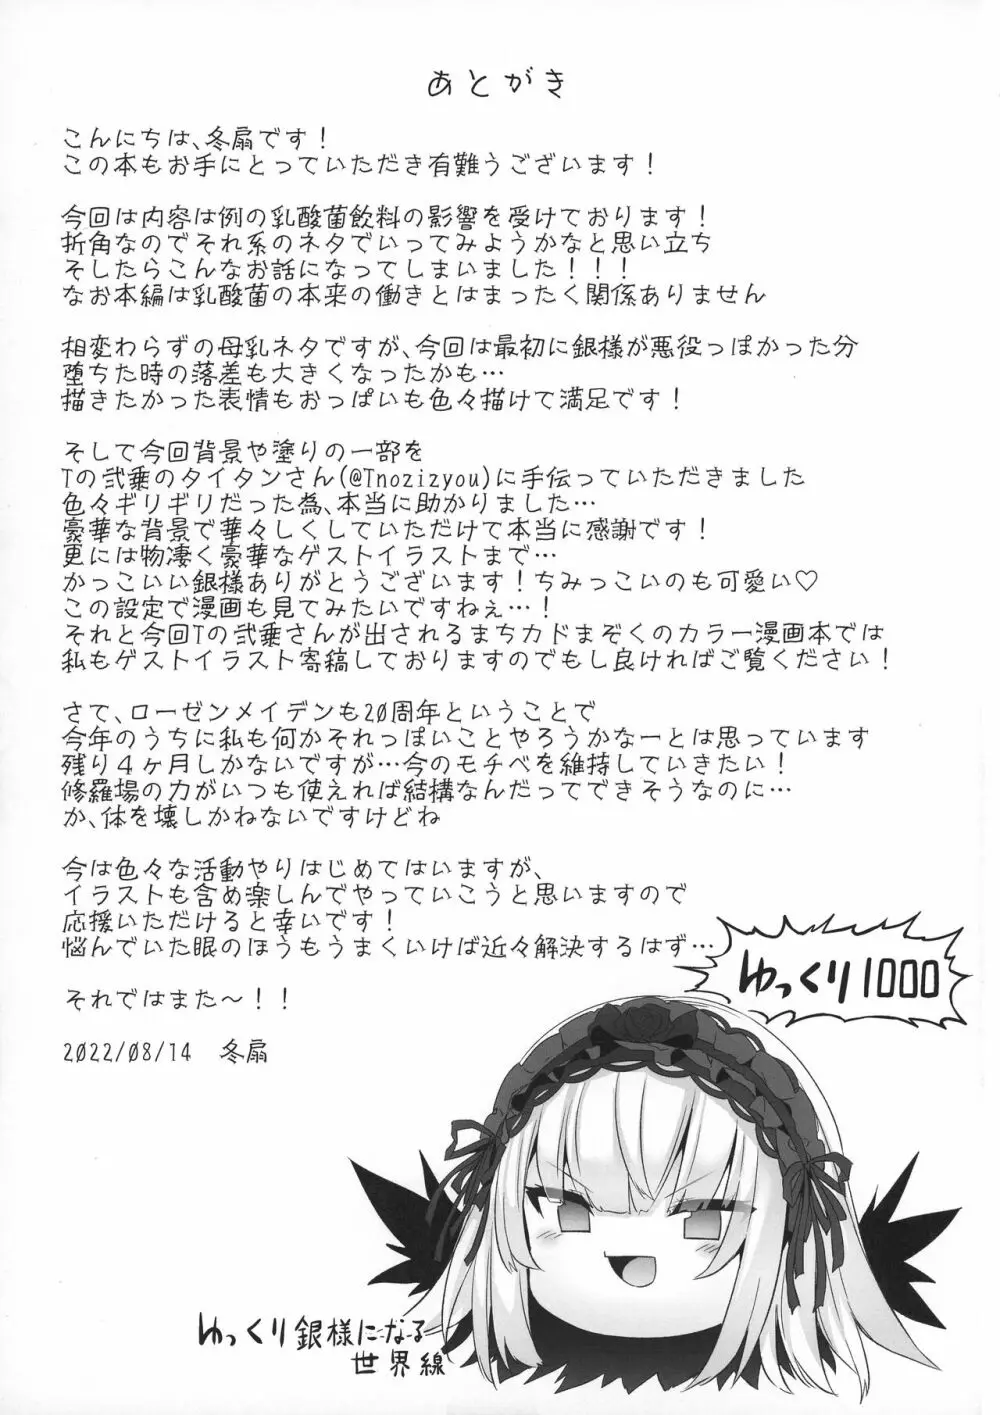 あとがき
こんにちは、冬扇です！
この本もお手にとっていただき有難うございます！
今回は内容は例の乳酸菌飲料の影響を受けております！
折角なのでそれ系のネタでいってみようかなと思い立ち
そしたらこんなお話になってしまいました！！！
なお本編は乳酸菌の本来の働きとはまったく関係ありません
相変わらずの母乳ネタですが、今回は最初に銀様が悪役っぽかった分
堕ちた時の落差も大きくなったかも…
描きたかった表情もおっぱいも色々描けて満足です！
そして今回背景や塗りの一部を
Tの弐乗のタイタンさん(@Tnozizyou)に手伝っていただきました
色々ギリギリだった為、本当に助かりました…
豪華な背景で華々しくしていただけて本当に感謝です！
更には物凄く豪華なゲストイラストまで…
かっこいい銀様ありがとうございます！ちみっこいのも可愛い♡
この設定で漫画も見てみたいですねぇ…！
それと今回Tの弐乗さんが出されるまちカドまぞくのカラー漫画本では
私もゲストイラスト寄稿しておりますのでもし良ければご覧ください！
さて、ローゼンメイデンも20周年ということで
今年のうちに私も何かそれっぽいことやろうかなーとは思っています
残り４ヶ月しかないですが…今のモチベを維持していきたい！
修羅場の力がいつも使えれば結構なんだってできそうなのに…
か、体を壊しかねないですけどね
今は色々な活動やりはじめてはいますが、
イラストも含め楽しんでやっていこうと思いますので
応援いただけると幸いです！
悩んでいた眠のほうもうまくいけば近々解決するはず…
それではまた〜！！
2022/08/14　冬扇
ゆっくり1000
ゆっくり銀様になる
世界線